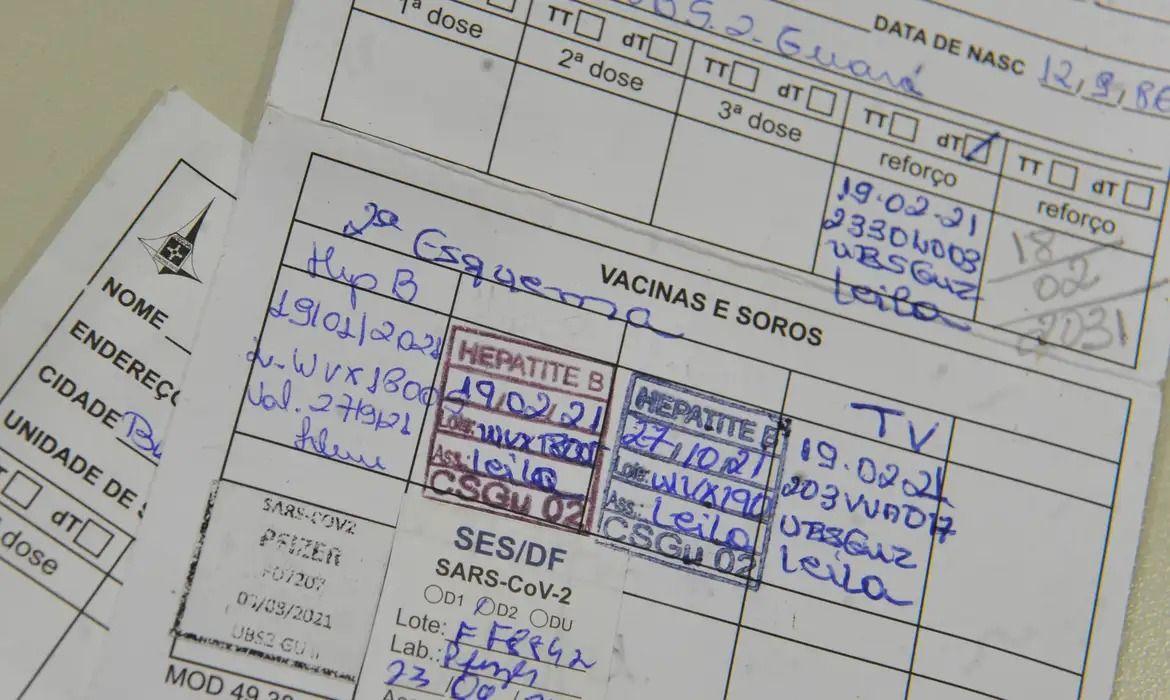 UBS.2-Guará
DATA DE NASC 12,9,86
1ª dose
TT dT
2ª dose
TT dT
3ª dose
TT dT
reforço
19.02.21
UBSGU2
Leila
TT dT
reforço
18
02
2031
VACINAS E SOROS
2ª Esquema
Hep B
19/01/2021
Val. 27/9/21
HEPATITE B
19/02/21
Lote:
Ass.: Leila
CSGu 02
HEPATITE B
27/10/21
Lote: WVX190
Ass.: Leila
CSGu 02
TV
19.02.21
UBSGU2
Leila
SARS-COV2
PFIZER
UBS2 GU
SES/DF
SARS-CoV-2
D1 D2 DU
Lote:
Lab.: Pfizer
23
MOD 49
NOME
ENDEREÇ
CIDADE
UNIDADE DE
dT
dose